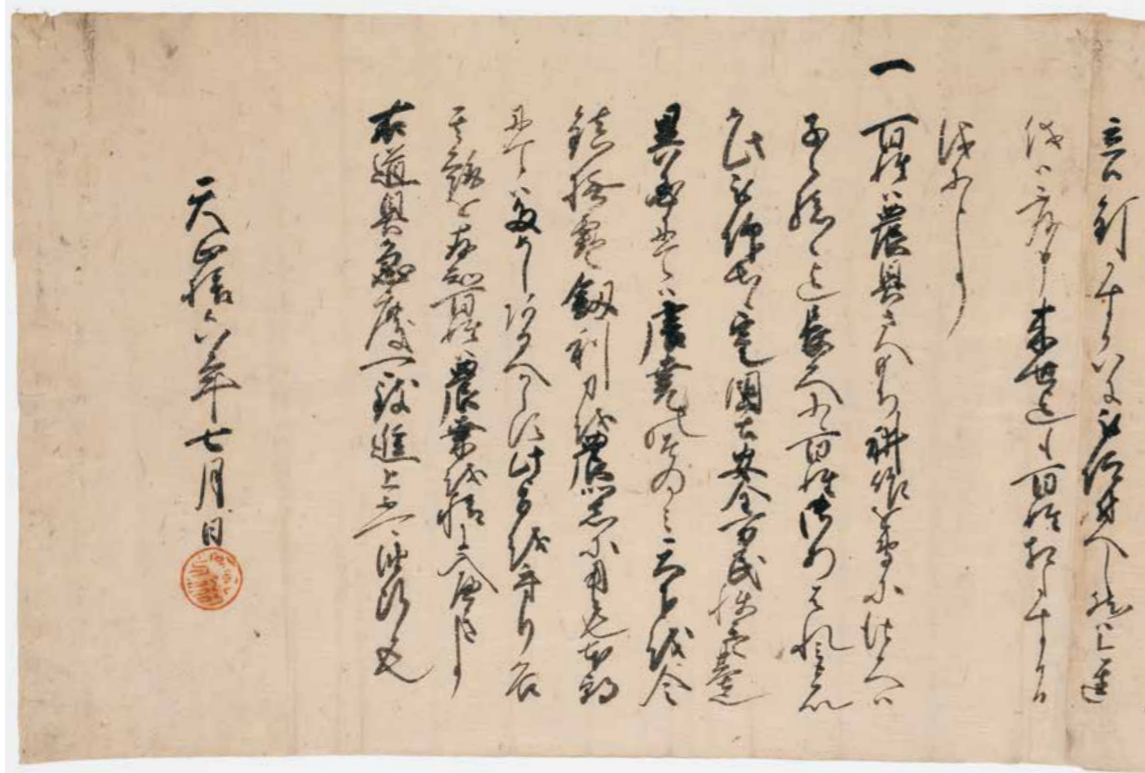 立候釘かすかいに被仰付へし然ハ今
儀ハ不及申来世迄も百姓相たすかる
儀ニ候事
一 百姓ハ農具さへもち耕作専ニ仕候へハ
子々孫々迄長久ニ百姓御あはれミを以
如此被仰出候寔国土安全万民快楽之基
異国にてハ唐堯のそのかミ天下を令
鎮撫宝劔利刀を農器ニ用也本朝
にてハためしあるへからす此旨を守り各
其趣を存知百姓ハ農業を精ニ入へき事
右道具急度可致進上不可油断候也
天正拾六年七月日